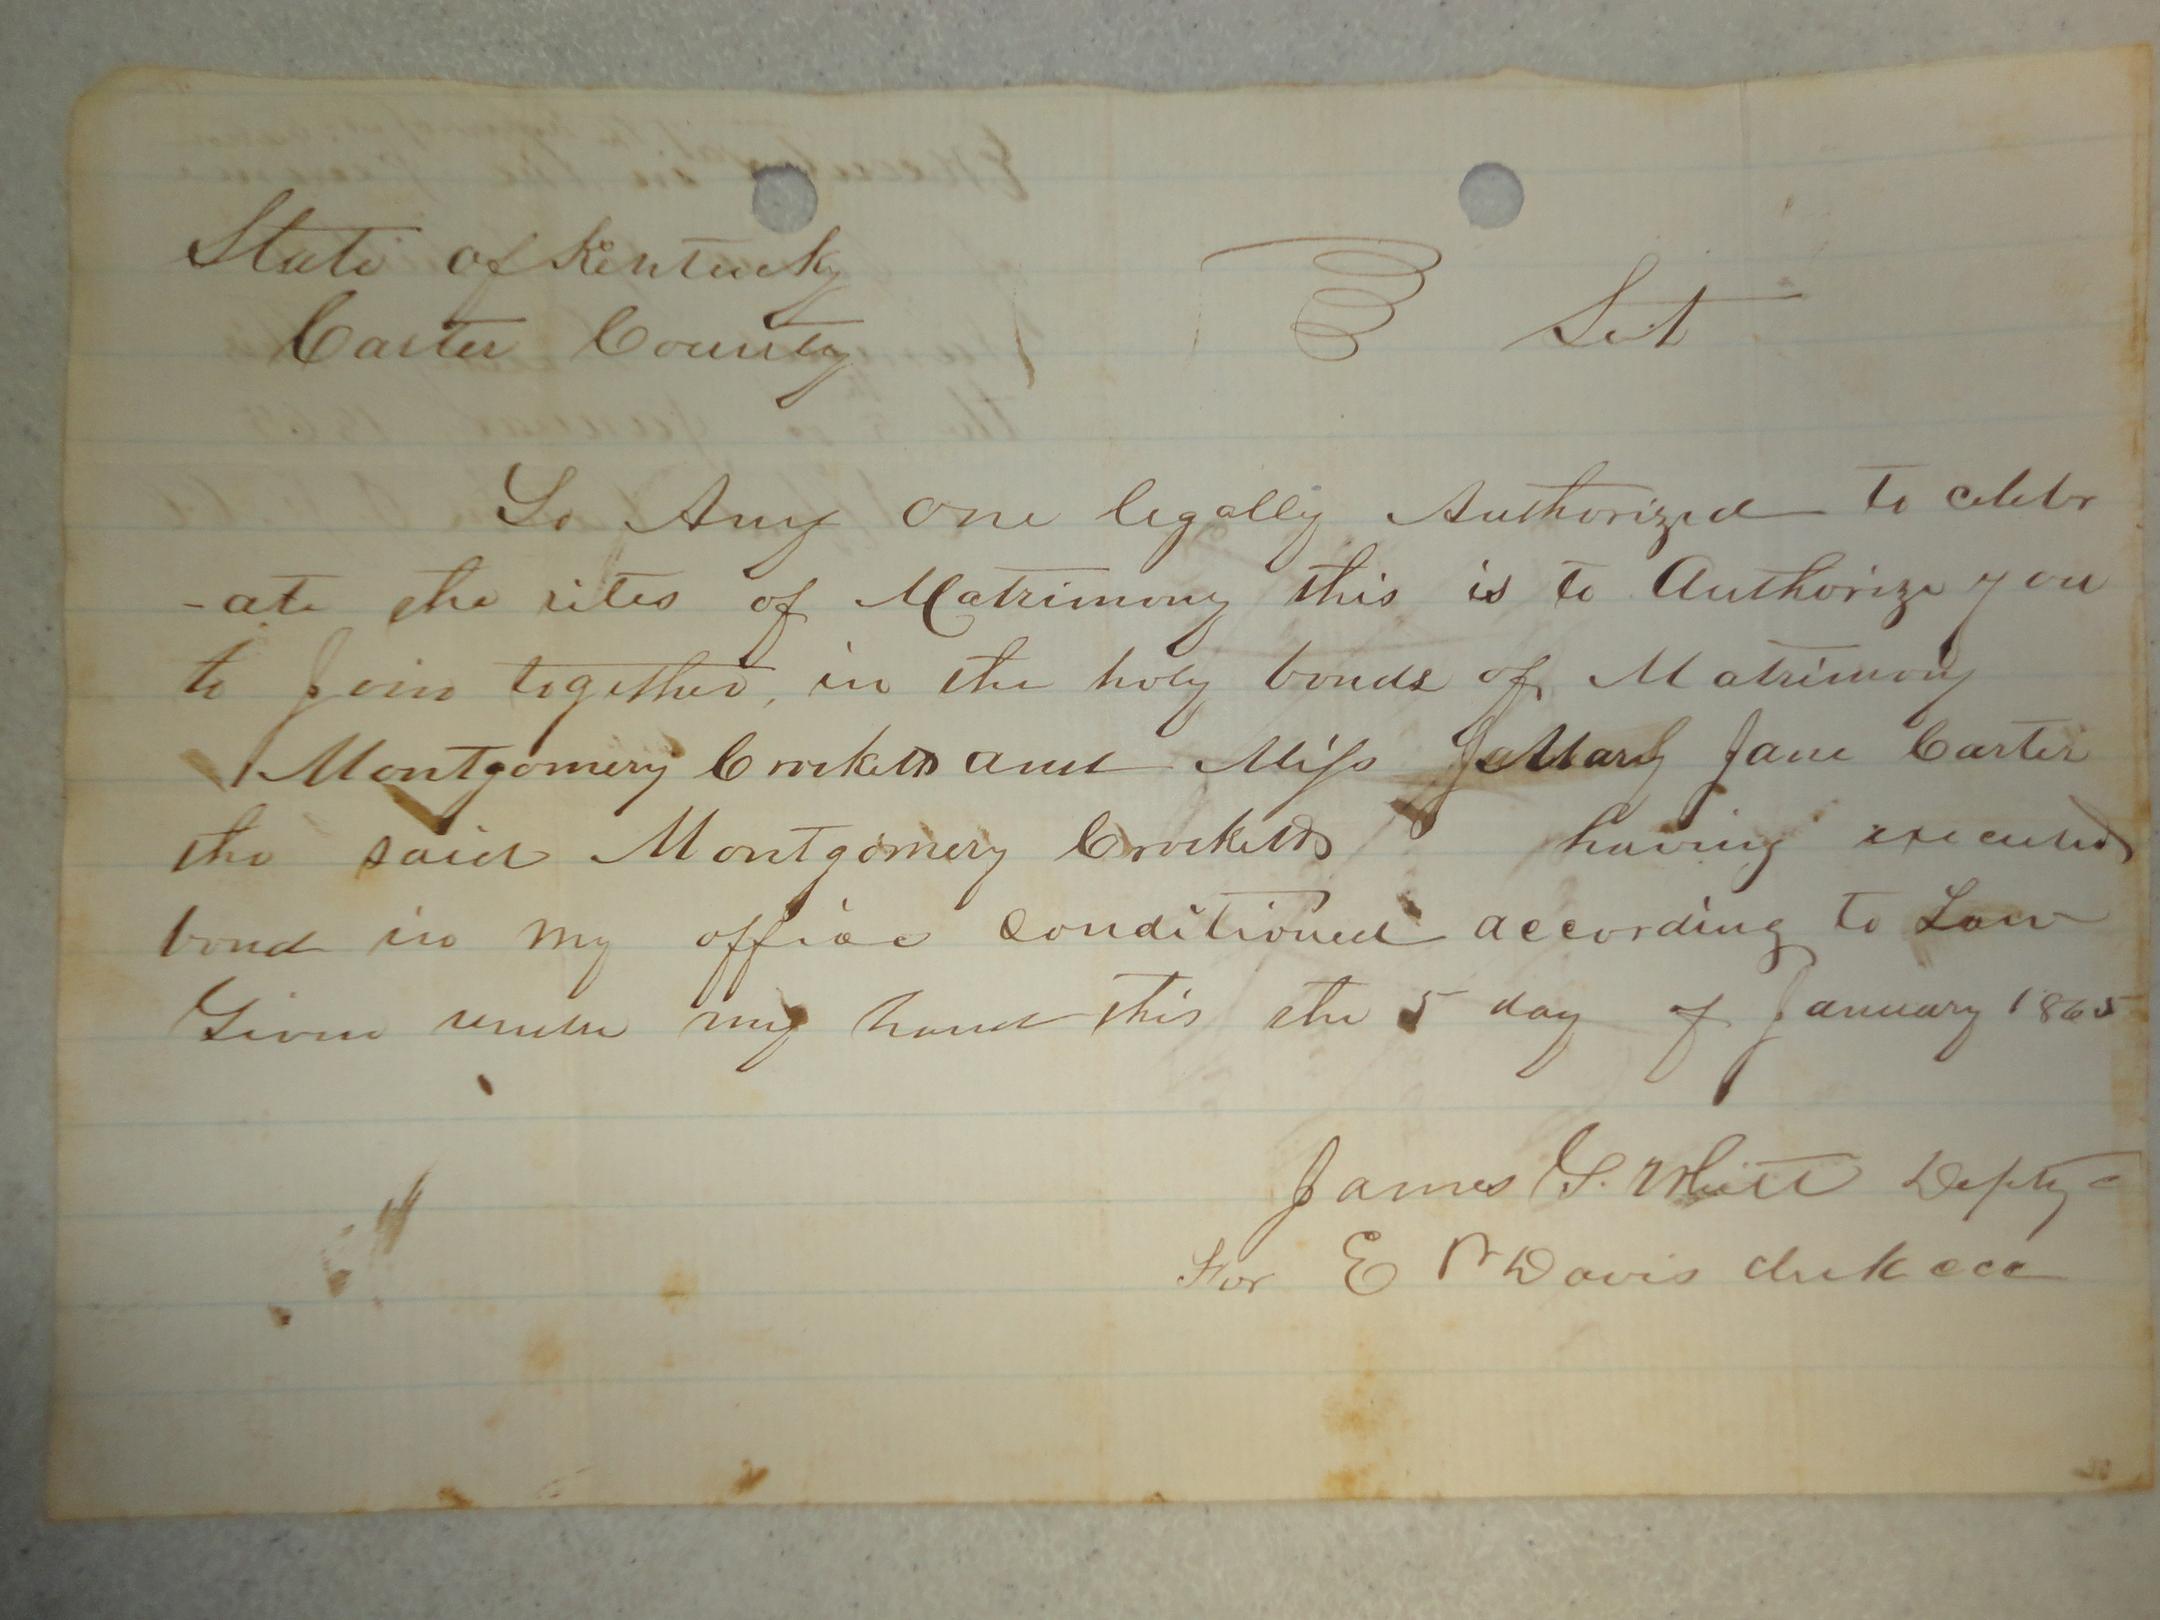 State of Kentucky
Carter County Sct
To Any one legally Authorized to celebr
-ate the rites of Matrimony this is to Authorize you
to Join together, in the holy bonds of Matrimony
Montgomery Crocketts and Miss Mary Jane Carter
the said Montgomery Crocketts having executed
bond in my office conditioned according to Law
Given under my hand this the 5 day of January 1865
James G. Whitt Depty
For E Davis clerk ccc